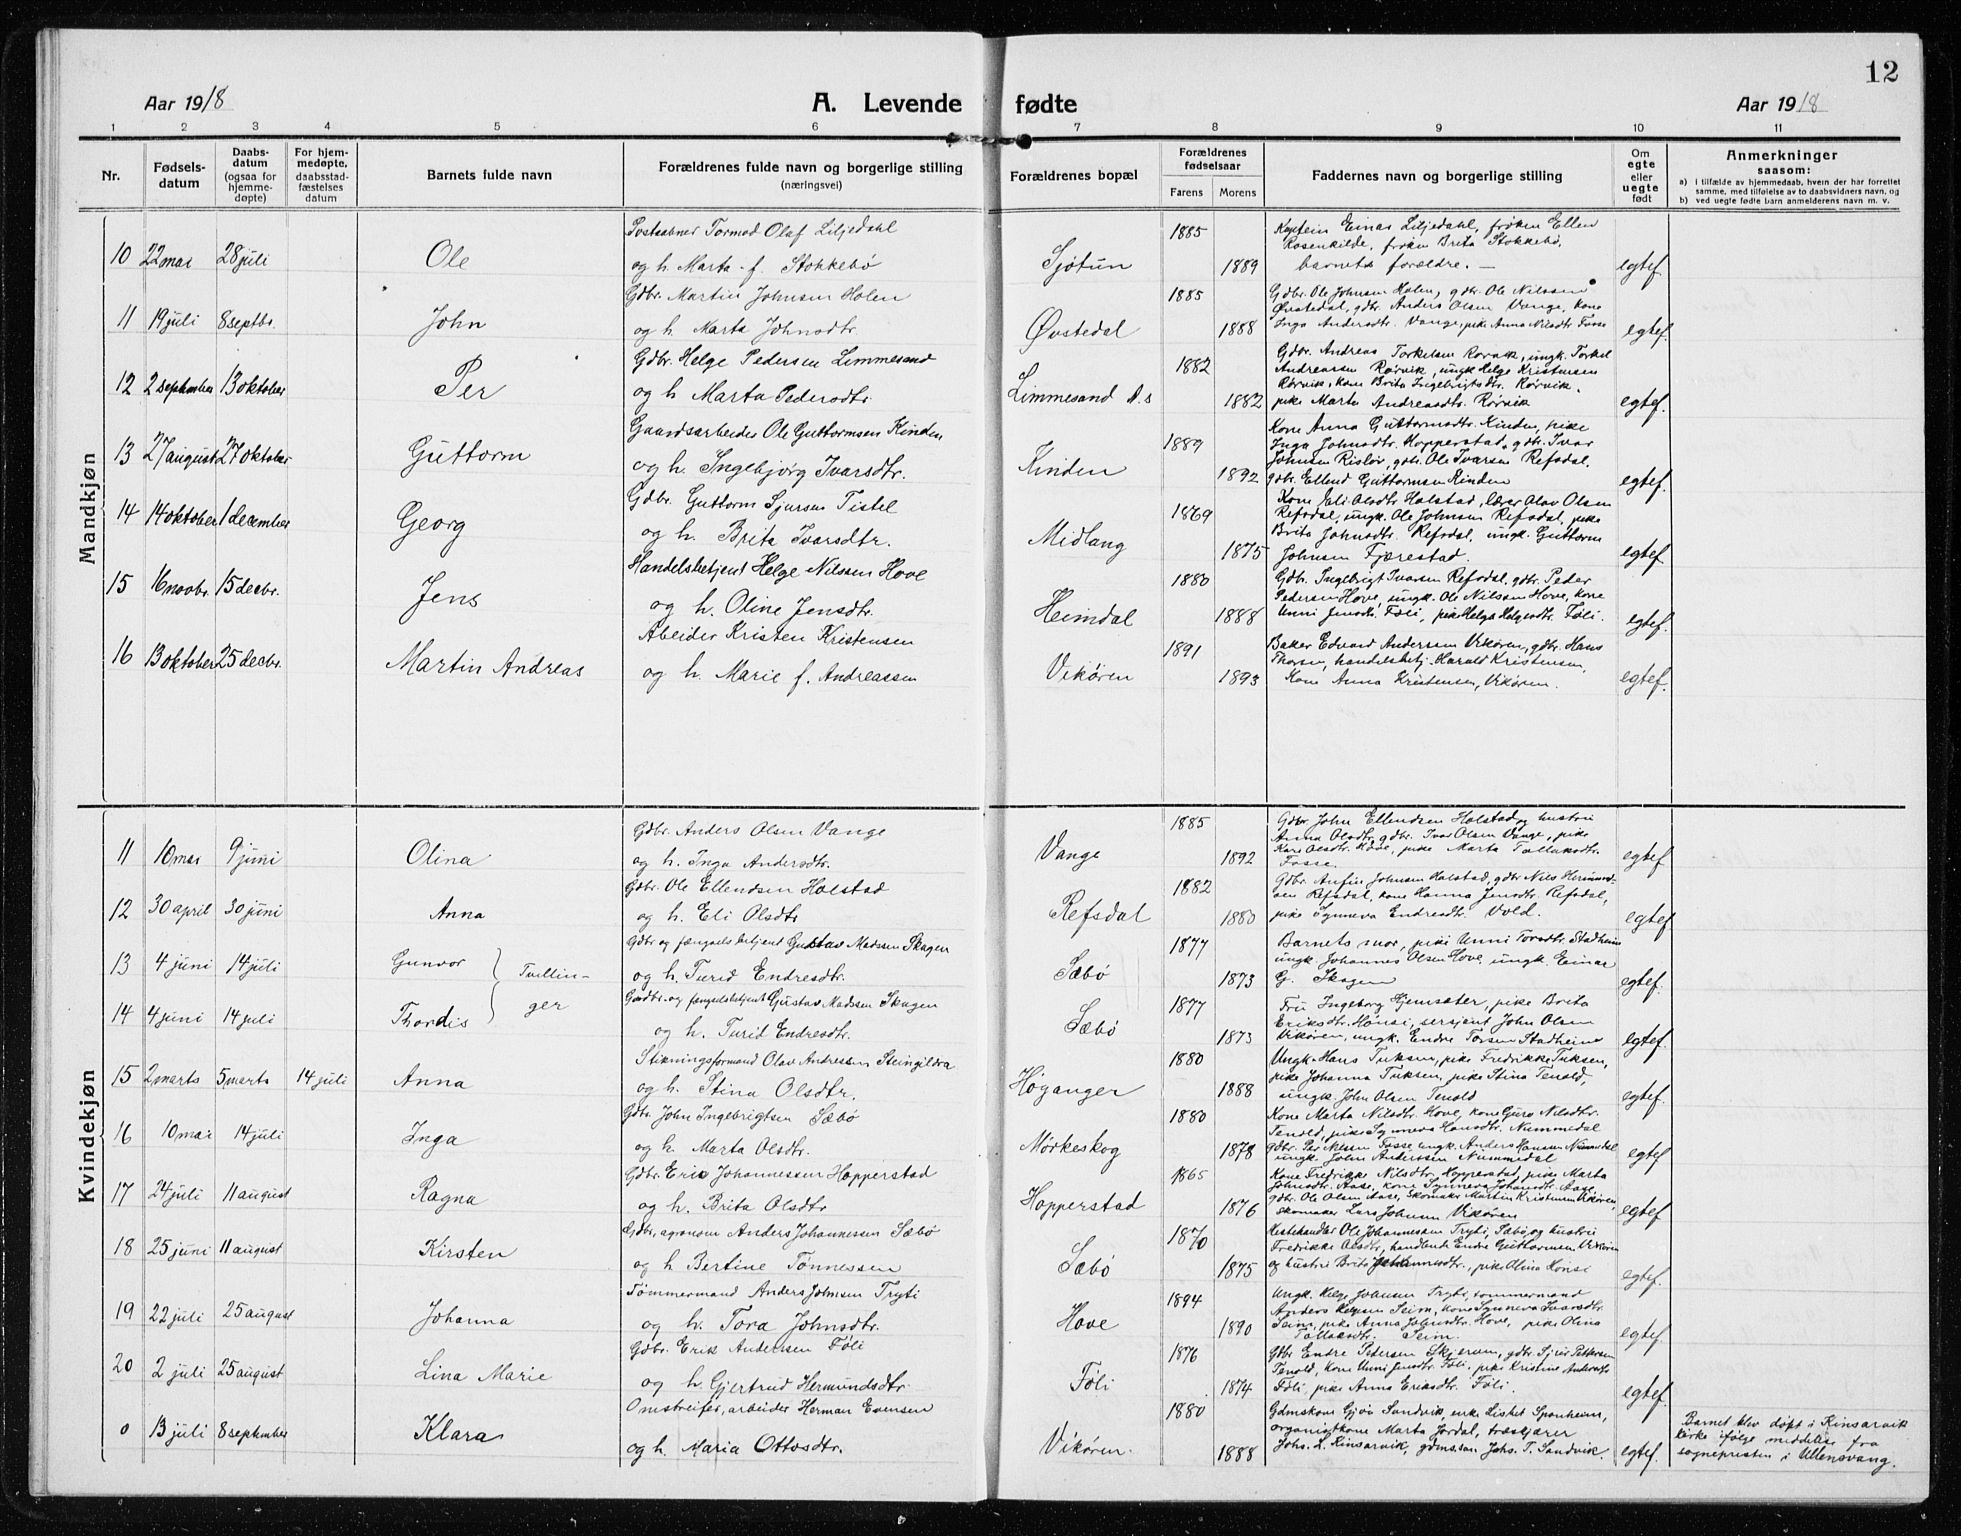 12
Aar 1918 A. Levende fødte Aar 1918
1 2 3 4 5 6 7 8 9 10 11
Nr. Fødsels-datum Daabs-datum (ogsaa for hjemme-døpte) For hjem-medøpte, daabsstad-fæstelses datum Barnets fulde navn Forældrenes fulde navn og borgerlige stilling (næringsvei) Forældrenes bopæl Forældrenes fødselsaar Farens Morens Faddernes navn og borgerlige stilling Om egte eller uegte født Anmerkninger saasom:
a) i tilfælde av hjemmedaab, hvem der har forrettet samme, med tilføielse av to daabsvidners navn, og
b) ved uegte fødte barn anmelderens navn m. v.
Mandkjøn
Postaabner Tormod Olaf Liljedahl 1885 Kaptein Einar Liljedahl, frøken Ellen
Rosenkilde, frøken Brita Stokkebø,
10 22 mai 28 juli Ole og h. Marta f. Stokkebø Sjøtun 1889 barnets forældre. — egtef.
Gdbr. Martin Johnsen Holen 1885 Gdbr. Ole Johnsen Holen, gdbr. Ole Nilssen
Øvstedal, gdbr. Anders Olsen Vange, kone
11 19 juli 8 septbr. John og h. Marta Johnsdtr. Øvstedal 1888 Inga Andersdtr. Vange, pike Anna Nilsdtr. Fosse egtef.
Gdbr. Helge Pedersen Limmesand 1882 Gdbr. Andreas Torkelsen Rørvik, ungk. Torkel
Andreassen Rørvik, ungk. Helge Kristensen
Rørvik, kone Brita Ingebrigtsdtr. Rørvik,
12 2 september 13 oktober Per og h. Marta Pedersdtr. Limmesand A.s 1882 pike Marta Andreasdtr. Rørvik egtef.
Gaardsarbeider Ole Guttormsen Kinden 1889 Kone Anna Guttormsdtr. Kinden, pike
Inga Johnsdtr. Hopperstad, gdbr. Ivar
Johnsen Risløv, gdbr. Ole Ivarsen Refsdal,
13 27 august 27 oktober Guttorm og h. Ingebjørg Ivarsdtr. Kinden 1892 gdbr. Ellend Guttormsen Kinden egtef.
Gdbr. Guttorm Sjursen Tistel 1869 Kone Eli Olsdtr. Holstad, lærer Olav Olsen
Refsdal, ungk. Ole Johnsen Refsdal, pike
Brita Johnsdtr. Refsdal, ungk. Guttorm
14 14 oktober 1 december Georg og h. Brita Ivarsdtr. Midlang 1875 Johnsen Fjærestad egtef.
Handelsbetjent Helge Nilssen Hove 1880 Gdbr. Ingebrigt Ivarsen Refsdal, gdbr. Peder
Pedersen Hove, ungk. Ole Nilsen Hove, kone
15 16 novbr. 15 decbr. Jens og h. Oline Jensdtr. Heimdal 1888 Unni Jensdtr. Føli, pike Helga Helgesdtr. Føli. egtef.
Abeider Kristen Kristensen 1891 Baker Edvard Andersen Vikøren, gdbr. Hans
Thorsen, handelsbetj. Harald Kristensen,
16 13 oktober 25 decbr. Martin Andreas og h. Marie f. Andreassen Vikøren 1893 Kone Anna Kristensen, Vikøren. egtef.
Kvindekjøn
Gdbr. Anders Olsen Vange 1885 Gdbr John Ellendsen Holstad og hustru
Anna Olsdtr, gdbr. Ivar Olsen Vange, pike
11 10 mai 9 juni Olina og h. Inga Andersdtr. Vange 1892 Kari Olsdtr. Hove, pike Marta Tollaksdtr. egtef.
Fosse.
Gdbr. Ole Ellendsen Holstad 1882 Gdbr. Anfin Johnsen Holstad, gdbr Nils Hermund-
sen Refsdal, kone Hanna Jensdtr. Refsdal,
12 30 april 30 juni Anna og h. Eli Olsdtr. Refsdal 1880 pike Synneva Endresdtr. Vold. egtef.
Gdbr og fængselsbetjent Gustav Madssen Skagen 1877 Barnets mor, pike Unni Torsdtr. Stadheim
ungk. Johannes Olsen Hove, ungk. Einar
13 4 juni 14 juli Gunvor } Tvillin-ger og h. Turid Endresdtr. Sæbø 1873 G. Skagen egtef.
Gardbr. og fængselsbetjent Gustav Madssen Skagen 1877 Fru Ingeborg Hjemsæter, pike Brita
Eriksdtr. Hønsi, sersjent John Olsen
14 4 juni 14 juli Thordis og h. Turid Endresdtr. Sæbø 1873 Vikøren, ungk. Endre Torsen Stadheim egtef.
Stikningsformand Olav Andressen Steingildra 1880 Ungk. Hans Tuksen, pike Fredrikke Tuksen,
pike Johanna Tuksen, pike Stina Tenold,
15 2 marts 5 marts 14 juli Anna og h. Stina Olsdtr. Høganger 1888 ungk. John Olsen Tenold egtef.
Gdbr. John Ingebrigtsen Sæbø 1880 Kone Marta Nilsdtr. Hove, kone Guro Nilsdtr.
Tenold, pike Synneva Hansdtr. Nummedal
16 10 mai 14 juli Inga og h. Marta Olsdtr. Mørkeskog 1878 gdbr. Per Nilssen Fosse, ungk. Anders Hansen Nummedal egtef.
ungk. John Anderssen Nummedal
Gdbr. Erik Johannessen Hopperstad 1865 Kone Fredrikke Nilsdtr. Hopperstad, pike Marta
Johnsdtr. Aase, kone Synneva Johansdtr. Aase,
17 24 juli 11 august Ragna og h. Brita Olsdtr Hopperstad 1876 gdbr. Ole Olsen Aase, Skomaker Martin Kristensen Vikøren, egtef
skomaker Lars Johnsen Vikøren
Gdbr, agronom Anders Johannessen Sæbø 1870 Hestehandler Ole Johannessen Tryti, Sæbø, og hustru
Fredrikke Olsdtr, handlende Endre Guttormsen Vikøren
18 25 juni 11 august Kirsten og h Bertine Tønnessen Sæbø 1875 og hustru Brita Johannesdtr., pike Olina Hønsi egtef.
Tømmermand Anders Johnsen Tryti 1894 Ungk. Helge Johnsen Tryti, tømmermand
Anders Helgesen Seim, kone Synneva Ivarsdtr.
19 22 juli 25 august Johanna og h. Tora Johnsdtr. Hove 1890 Seim, pike Anna Johnsdtr. Hove, pike Olina egtef.
Tollaksdtr. Seim.
Gdbr. Erik Anderssen Føli 1876 Gdbr Endre Pedersen Skjerven, gdbr. Sjur Pettersen
Tenold, kone Unni Jensdtr. Føli, pike Kristine Andersdtr
20 2 juli 25 august Lina Marie og h. Gjertrud Hermundsdtr. Føli 1874 Føli, pike Anna Eriksdtr. Føli. egtef.
Omstreifer, arbeider Herman Evensen 1880 Gdmskone Gjøri Sandvik, enke Lisbet Sponheim,
organistkone Marta Jordal, træskjærer
0 13 juli 8 september Klara og h. Maria Ottosdtr. Vikøren. 1888 Johs. L. Kinsarvik, gdmssøn Johs. T. Sandvik. egtef.
Barnet blev døpt i Kinsarvik
kirke ifølge meddelelse fra
sognepresten i Ullensvang.